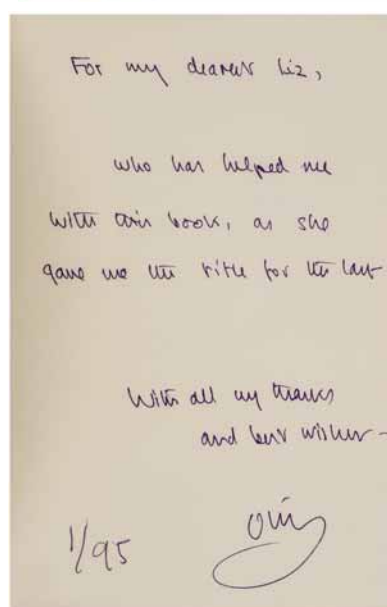 For my dearest Liz,
who has helped me
with this book, as she
gave me the title for the last
With all my thanks
and best wishes –
1/95